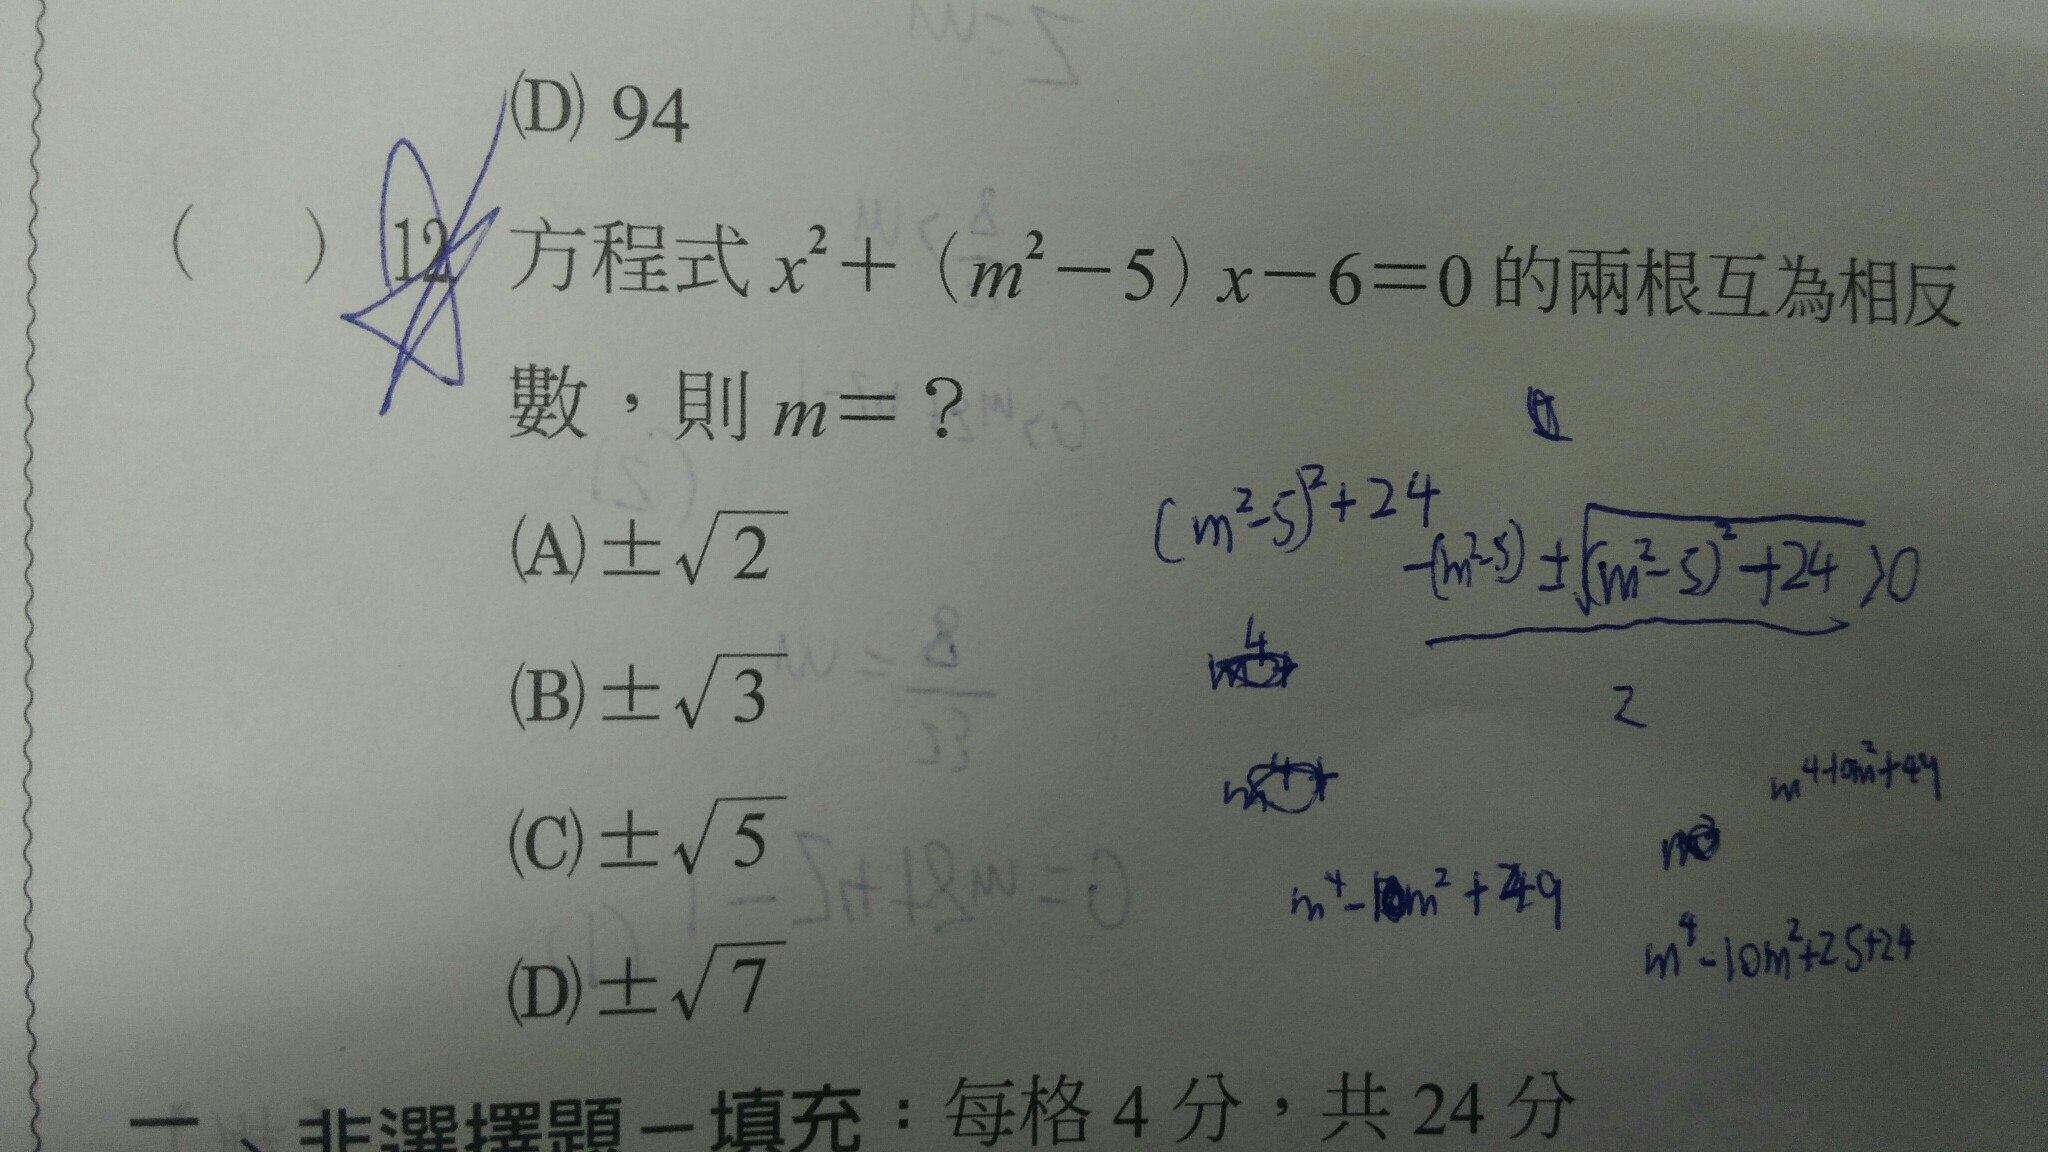 (D) 94
(　) 12. 方程式 x²＋（m²－5）x－6＝0 的兩根互為相反
數，則 m＝？
(A) ±√2
(B) ±√3
(C) ±√5
(D) ±√7
(m²-5)²+24
-(m²-5) ± √(m²-5)²+24 >0
2
m⁴-10m²+49
m⁴-10m²+25+24
二、非選擇題－填充：每格 4 分，共 24 分